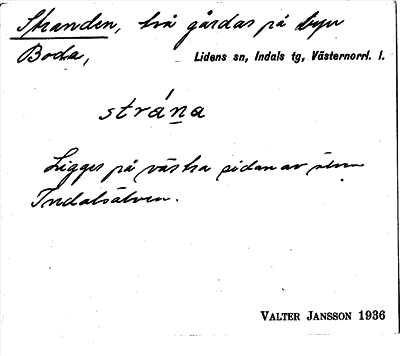 Stranden, två gårdar på byn
Boda, Lidens sn, Indals tg, Västernorrl. l.
strána
Ligger på västra sidan av älven
Indalsälven.
VALTER JANSSON 1936